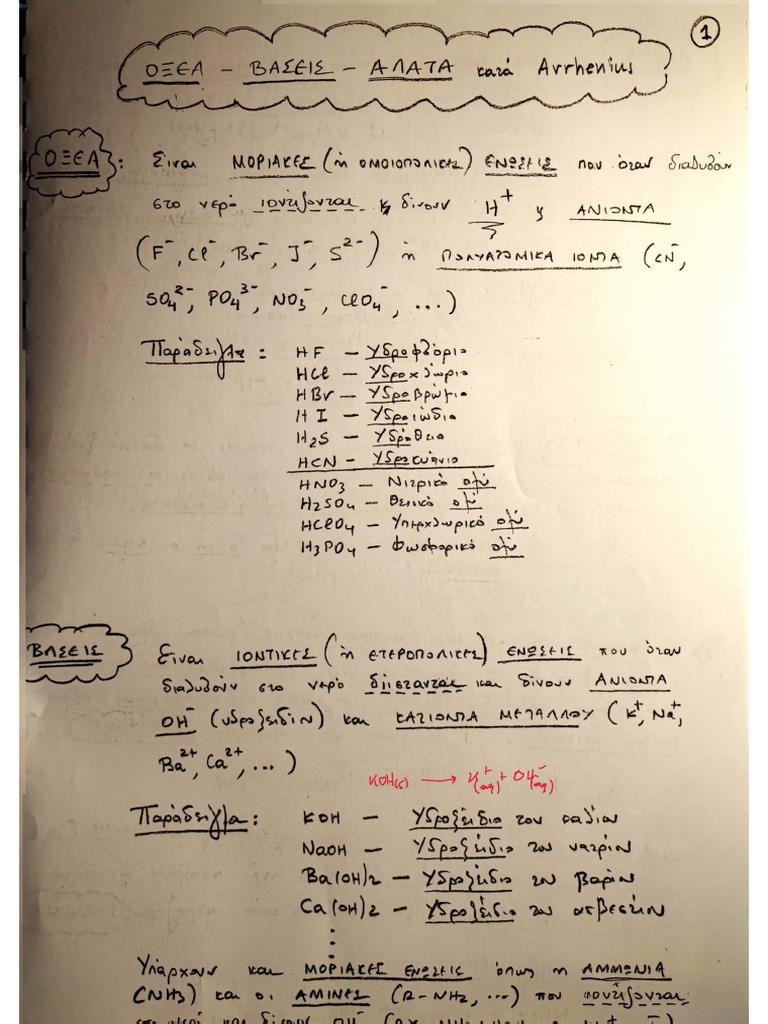 1
ΟΞΕΑ – ΒΑΣΕΙΣ – ΑΛΑΤΑ κατά Arrhenius
ΟΞΕΑ : Είναι ΜΟΡΙΑΚΕΣ (ή ΟΜΟΙΟΠΟΛΙΚΕΣ) ΕΝΩΣΕΙΣ που όταν διαλυθούν
στο νερό ιοντίζονται κ δίνουν H⁺ κ ΑΝΙΟΝΤΑ
(F⁻, Cl⁻, Br⁻, I⁻, S²⁻) ή ΠΟΛΥΑΤΟΜΙΚΑ ΙΟΝΤΑ (CN⁻,
SO₄²⁻, PO₄³⁻, NO₃⁻, ClO₄⁻, ...)
Παράδειγμα : HF – Υδροφθόριο
HCl – Υδροχλώριο
HBr – Υδροβρώμιο
HI – Υδροιώδιο
H₂S – Υδρόθειο
HCN – Υδροκυάνιο
HNO₃ – Νιτρικό οξύ
H₂SO₄ – Θειικό οξύ
HClO₄ – Υπερχλωρικό οξύ
H₃PO₄ – Φωσφορικό οξύ
ΒΑΣΕΙΣ Είναι ΙΟΝΤΙΚΕΣ (ή ΕΤΕΡΟΠΟΛΙΚΕΣ) ΕΝΩΣΕΙΣ που όταν
διαλυθούν στο νερό διίστανται και δίνουν ΑΝΙΟΝΤΑ
OH⁻ (υδροξειδίου) και ΚΑΤΙΟΝΤΑ ΜΕΤΑΛΛΟΥ (K⁺, Na⁺,
Ba²⁺, Ca²⁺, ...)
KOH(s) → K⁺(aq) + OH⁻(aq)
Παράδειγμα : KOH – Υδροξείδιο του καλίου
NaOH – Υδροξείδιο του νατρίου
Ba(OH)₂ – Υδροξείδιο του βαρίου
Ca(OH)₂ – Υδροξείδιο του ασβεστίου
Υπάρχουν και ΜΟΡΙΑΚΕΣ ΕΝΩΣΕΙΣ όπως η ΑΜΜΩΝΙΑ
(NH₃) και οι ΑΜΙΝΕΣ (R–NH₂, ...) που ιοντίζονται
στο νερό και δίνουν OH⁻